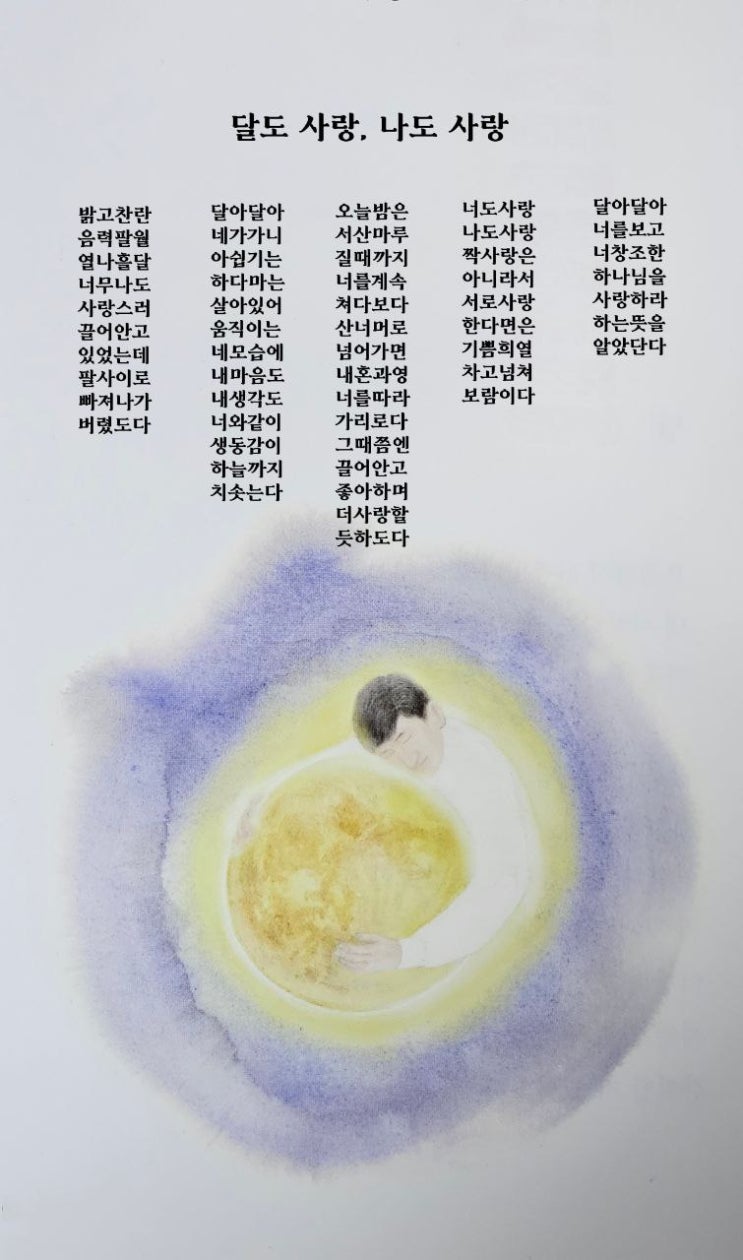 달도 사랑, 나도 사랑
밝고찬란
음력팔월
열나흘달
너무나도
사랑스러
끌어안고
있었는데
팔사이로
빠져나가
버렸도다
달아달아
네가가니
아쉽기는
하다마는
살아있어
움직이는
네모습에
내마음도
내생각도
너와같이
생동감이
하늘까지
치솟는다
오늘밤은
서산마루
질때까지
너를계속
쳐다보다
산너머로
넘어가면
내혼과영
너를따라
가리로다
그때쯤엔
끌어안고
좋아하며
더사랑할
듯하도다
너도사랑
나도사랑
짝사랑은
아니라서
서로사랑
한다면은
기쁨희열
차고넘쳐
보람이다
달아달아
너를보고
너창조한
하나님을
사랑하라
하는뜻을
알았단다